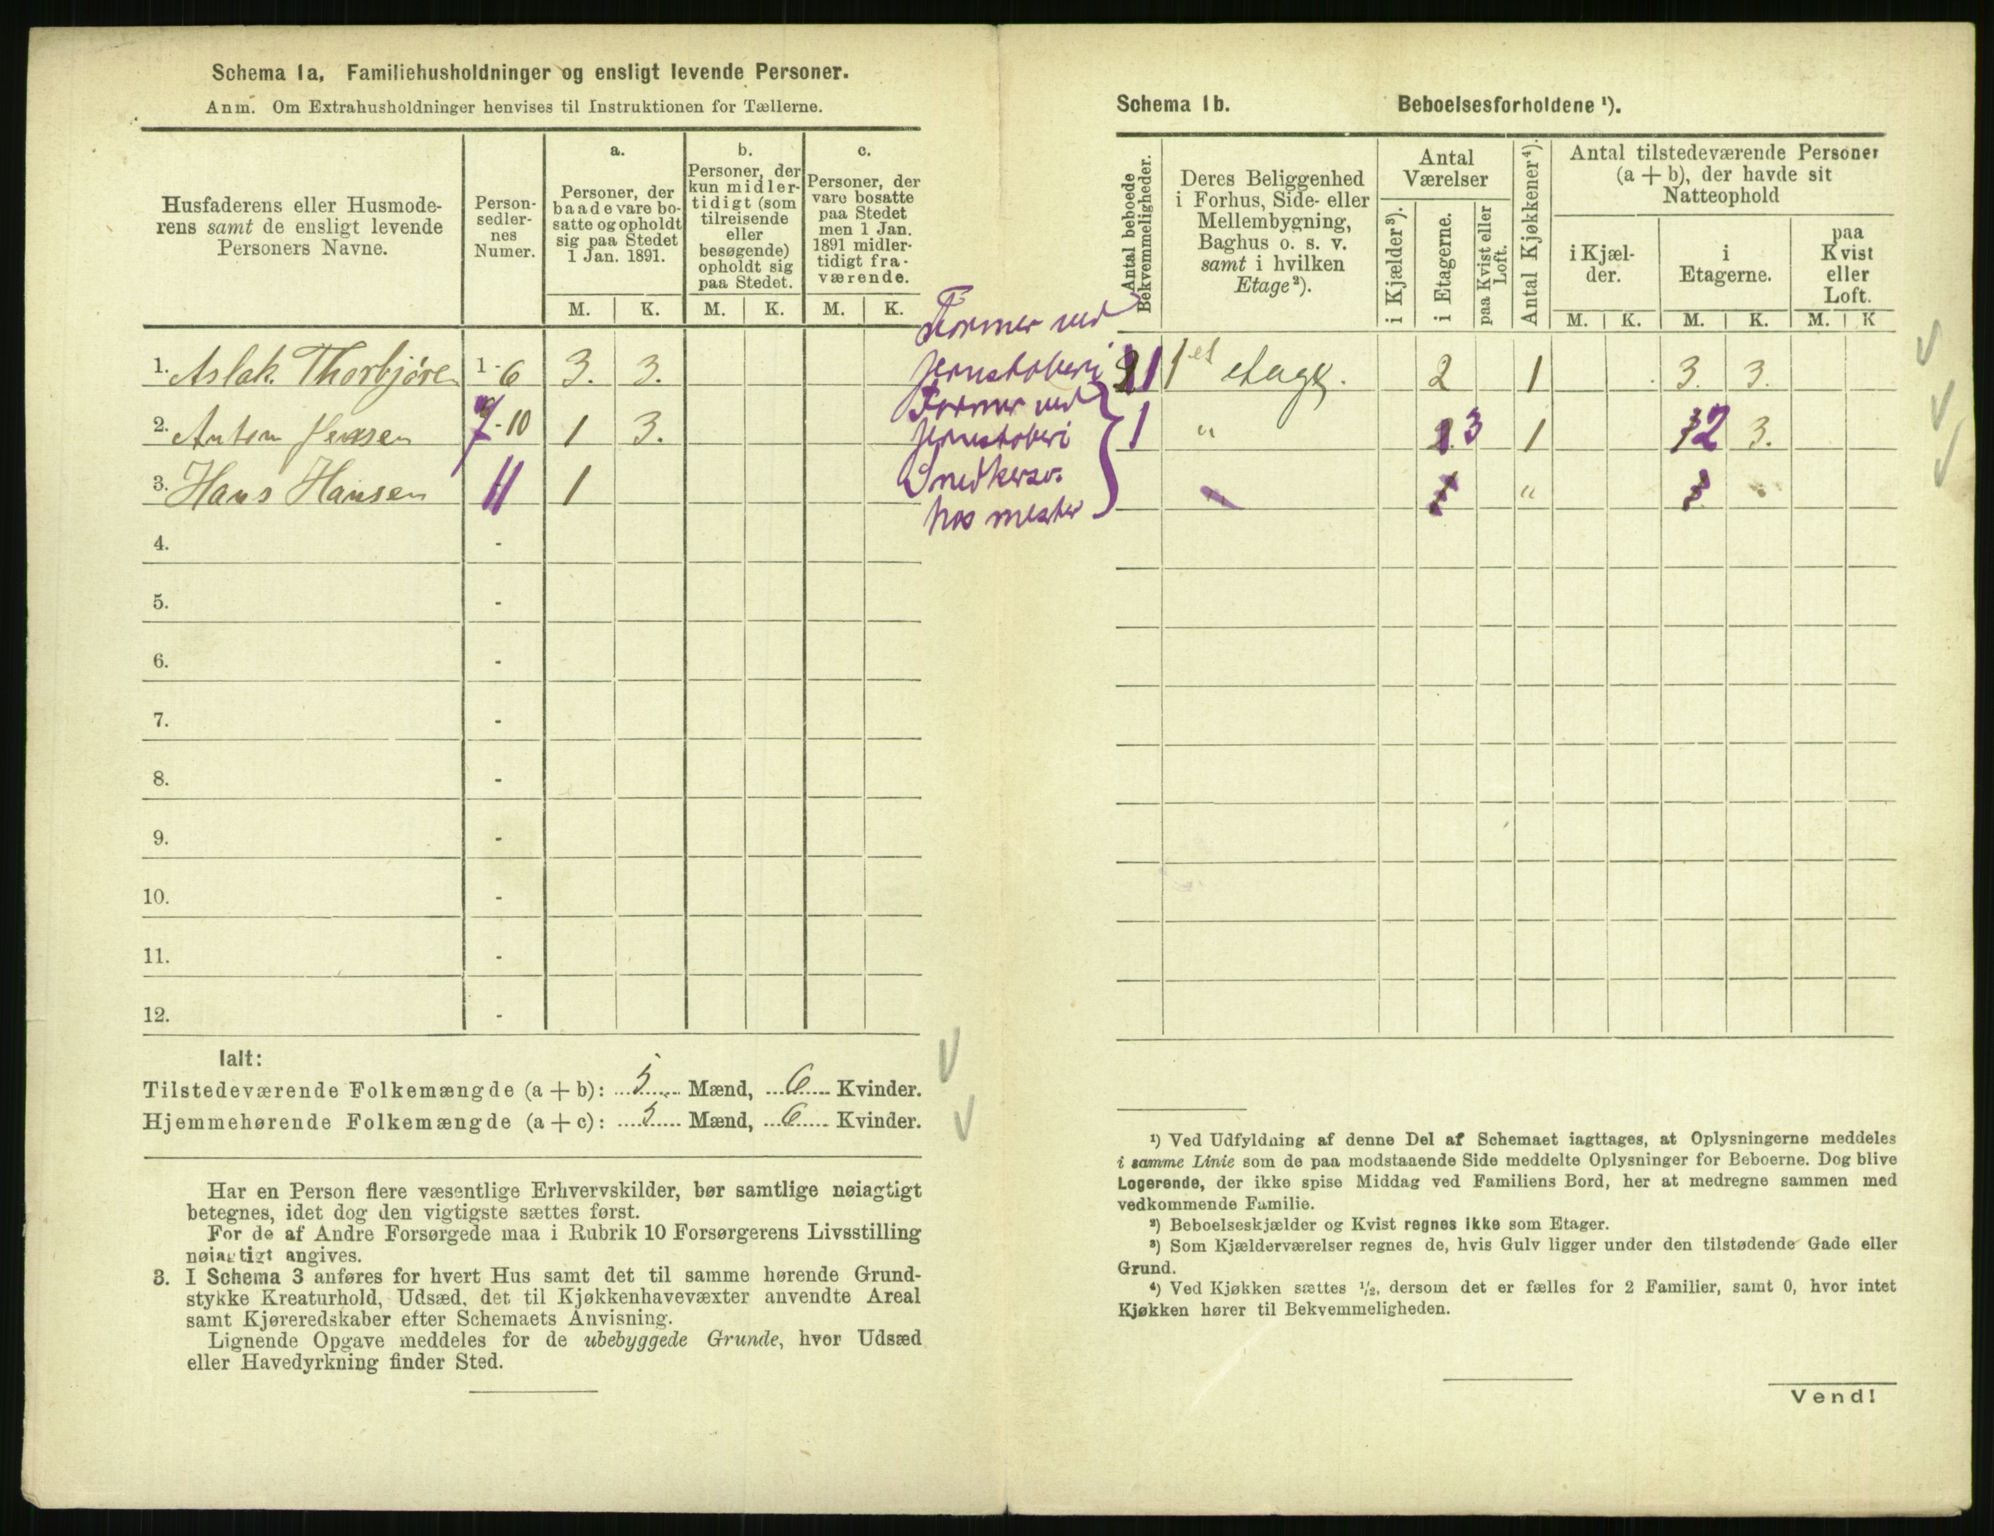 Schema 1a, Familiehusholdninger og ensligt levende Personer.
Anm. Om Extrahusholdninger henvises til Instruktionen for Tællerne.
Husfaderens eller Husmode-
rens samt de ensligt levende
Personers Navne.
Person-
sedler-
nes
Numer.
a.
Personer, der
baade vare bo-
satte og opholdt
sig paa Stedet
1 Jan. 1891.
b.
Personer, der
kun midler-
tidigt (som
tilreisende
eller
besøgende)
opholdt sig
paa Stedet.
c.
Personer, der
vare bosatte
paa Stedet
men 1 Jan.
1891 midler-
tidigt fra-
værende.
M. K. M. K. M. K.
1. Aslak Thorbjørn 1-6 3. 3.
2. Anton Jensen 7-10 1 3.
3. Hans Hansen 11 1
4. -
5. -
6. -
7. -
8. -
9. -
10. -
11. -
12. -
Former ved
jernstøberi
Former ved
jernstøberi
Snedkersv.
hos mester
Ialt:
Tilstedeværende Folkemængde (a + b): 5 Mænd, 6 Kvinder.
Hjemmehørende Folkemængde (a + c): 5 Mænd, 6 Kvinder.
Har en Person flere væsentlige Erhvervskilder, bør samtlige nøiagtigt
betegnes, idet dog den vigtigste sættes først.
For de af Andre Forsørgede maa i Rubrik 10 Forsørgerens Livsstilling
nøiagtigt angives.
3. I Schema 3 anføres for hvert Hus samt det til samme hørende Grund-
stykke Kreaturhold, Udsæd, det til Kjøkkenhavevæxter anvendte Areal
samt Kjøreredskaber efter Schemaets Anvisning.
Lignende Opgave meddeles for de ubebyggede Grunde, hvor Udsæd
eller Havedyrkning finder Sted.
Schema 1b. Beboelsesforholdene ¹).
Antal beboede
Bekvemmeligheder.
Deres Beliggenhed
i Forhus, Side- eller
Mellembygning,
Baghus o. s. v.
samt i hvilken
Etage ²).
Antal
Værelser
i Kjælder ³).
i Etagerne.
paa Kvist eller
Loft.
Antal Kjøkkener ⁴).
Antal tilstedeværende Personer
(a + b), der havde sit
Natteophold
i Kjæl-
der.
i
Etagerne.
paa
Kvist
eller
Loft.
M. K. M. K. M. K
1 1et etage. 2 1 3. 3.
1 " 3 1 2 3.
"
¹) Ved Udfyldning af denne Del af Schemaet iagttages, at Oplysningerne meddeles
i samme Linie som de paa modstaaende Side meddelte Oplysninger for Beboerne. Dog blive
Logerende, der ikke spise Middag ved Familiens Bord, her at medregne sammen med
vedkommende Familie.
²) Beboelseskjælder og Kvist regnes ikke som Etager.
³) Som Kjælderværelser regnes de, hvis Gulv ligger under den tilstødende Gade eller
Grund.
⁴) Ved Kjøkken sættes ½, dersom det er fælles for 2 Familier, samt 0, hvor intet
Kjøkken hører til Bekvemmeligheden.
Vend!